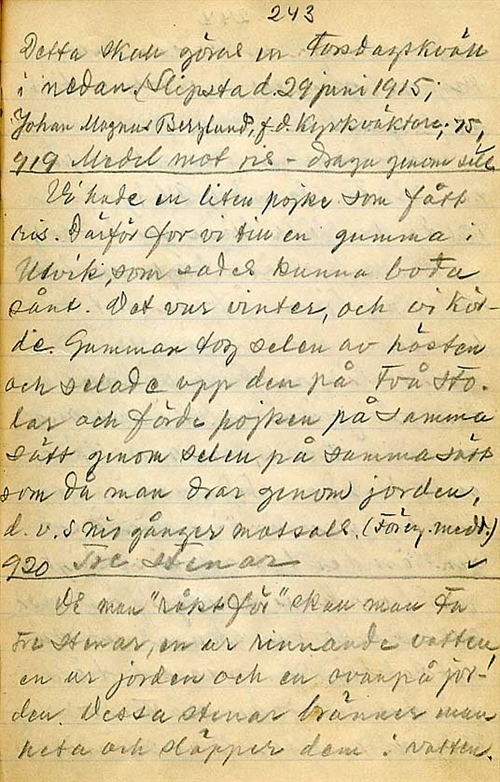 243
Detta skall göras en torsdagskväll
i nedan. (Slipsta d. 29 juni 1915;
Johan Magnus Berglund, f.d. Kyrkväktare; 75,
919 Medel mot ris - draga genom sele
Vi hade en liten pojke som fått
ris. Därför for vi till en gumma i
Utvik, som sades kunna bota
sånt. Det var vinter, och vi kör-
de. Gumman tog selen av hästen
och selade upp den på två sto-
lar och förde pojken på samma
sätt genom selen på samma sätt
som då man drar genom jorden,
d.v.s nio gånger motsols. (Föreg. medd.)
920 Tre stenar
Då man "råkt för" skall man ta
tre stenar, en ur rinnande vatten,
en ur jorden och en ovanpå jor-
den. Dessa stenar bränner man
heta och släpper dem i vatten.